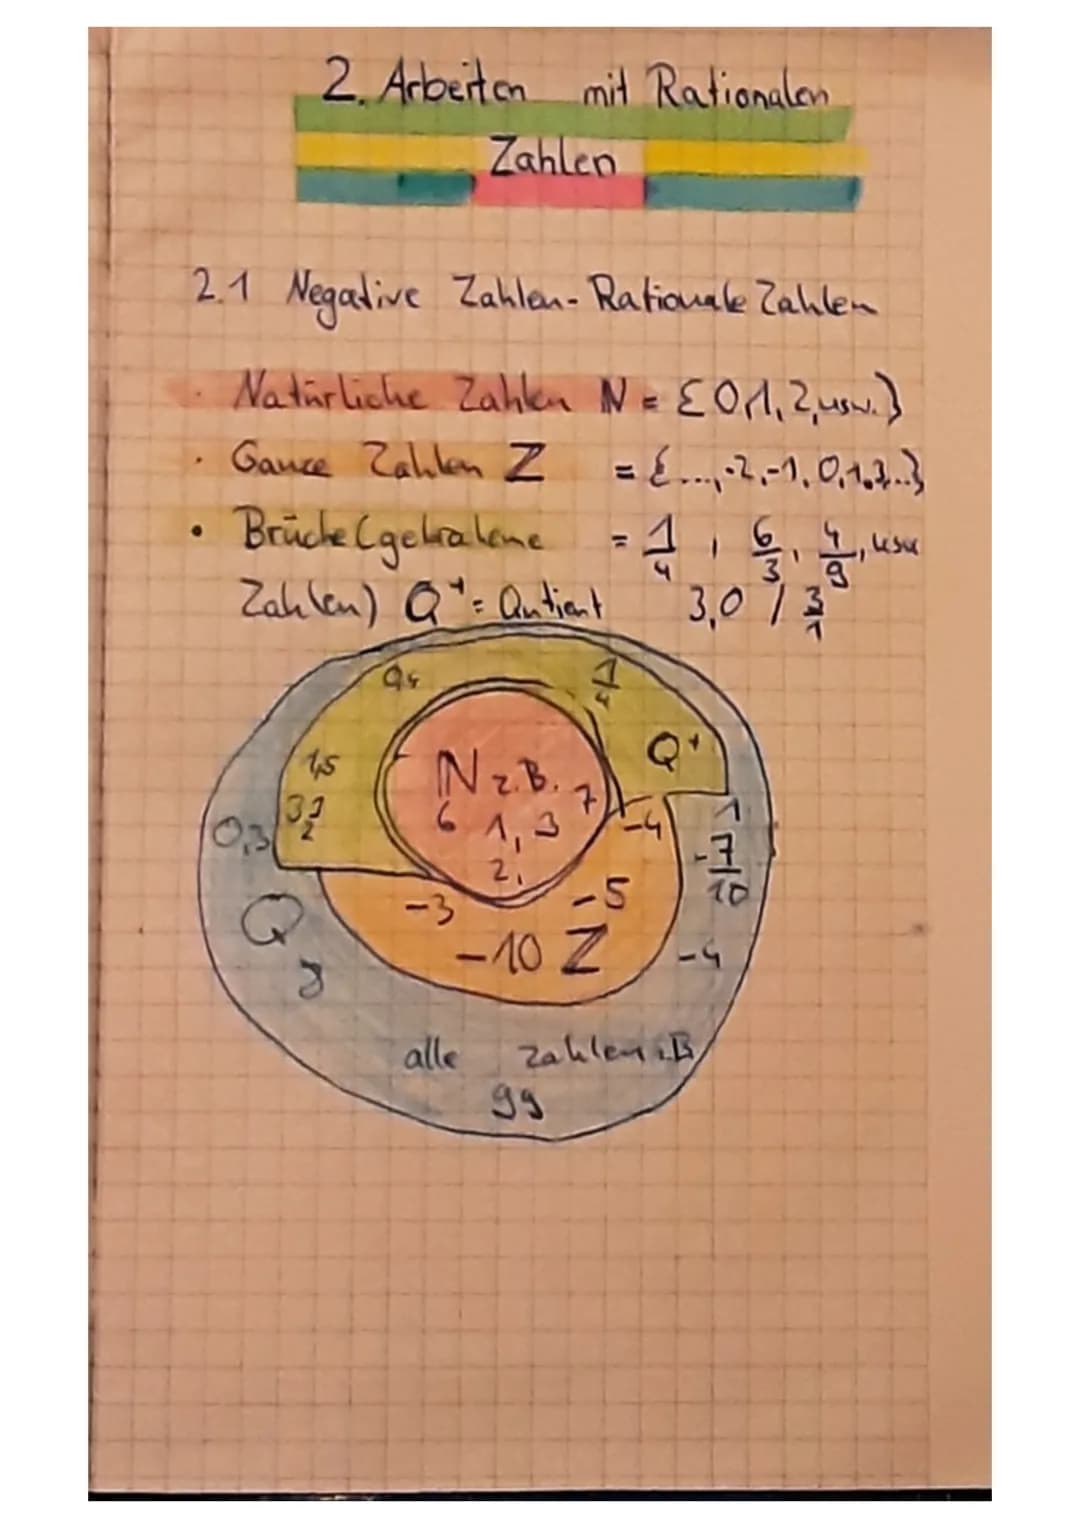 2. Arbeiten mit Rationalen
Zahlen
2.1 Negative Zahlen - Rationale Zahlen
· Natürliche Zahlen N = {0,1,2,usw.}
· Ganze Zahlen Z = {...,-2,-1,0,1,2...}
• Brüche (gebrochene = 1/4, 6/3, 4/9, usw
Zahlen) Q⁺ = Qutient 3,0 / 3/1
1/4
Q⁺
1,5
N z.B. 7
6 1, 3
2,
3 1/2
0,3
-4
-7/10
-3 -5
Q
-10 Z -4
8
alle Zahlen z.B
99